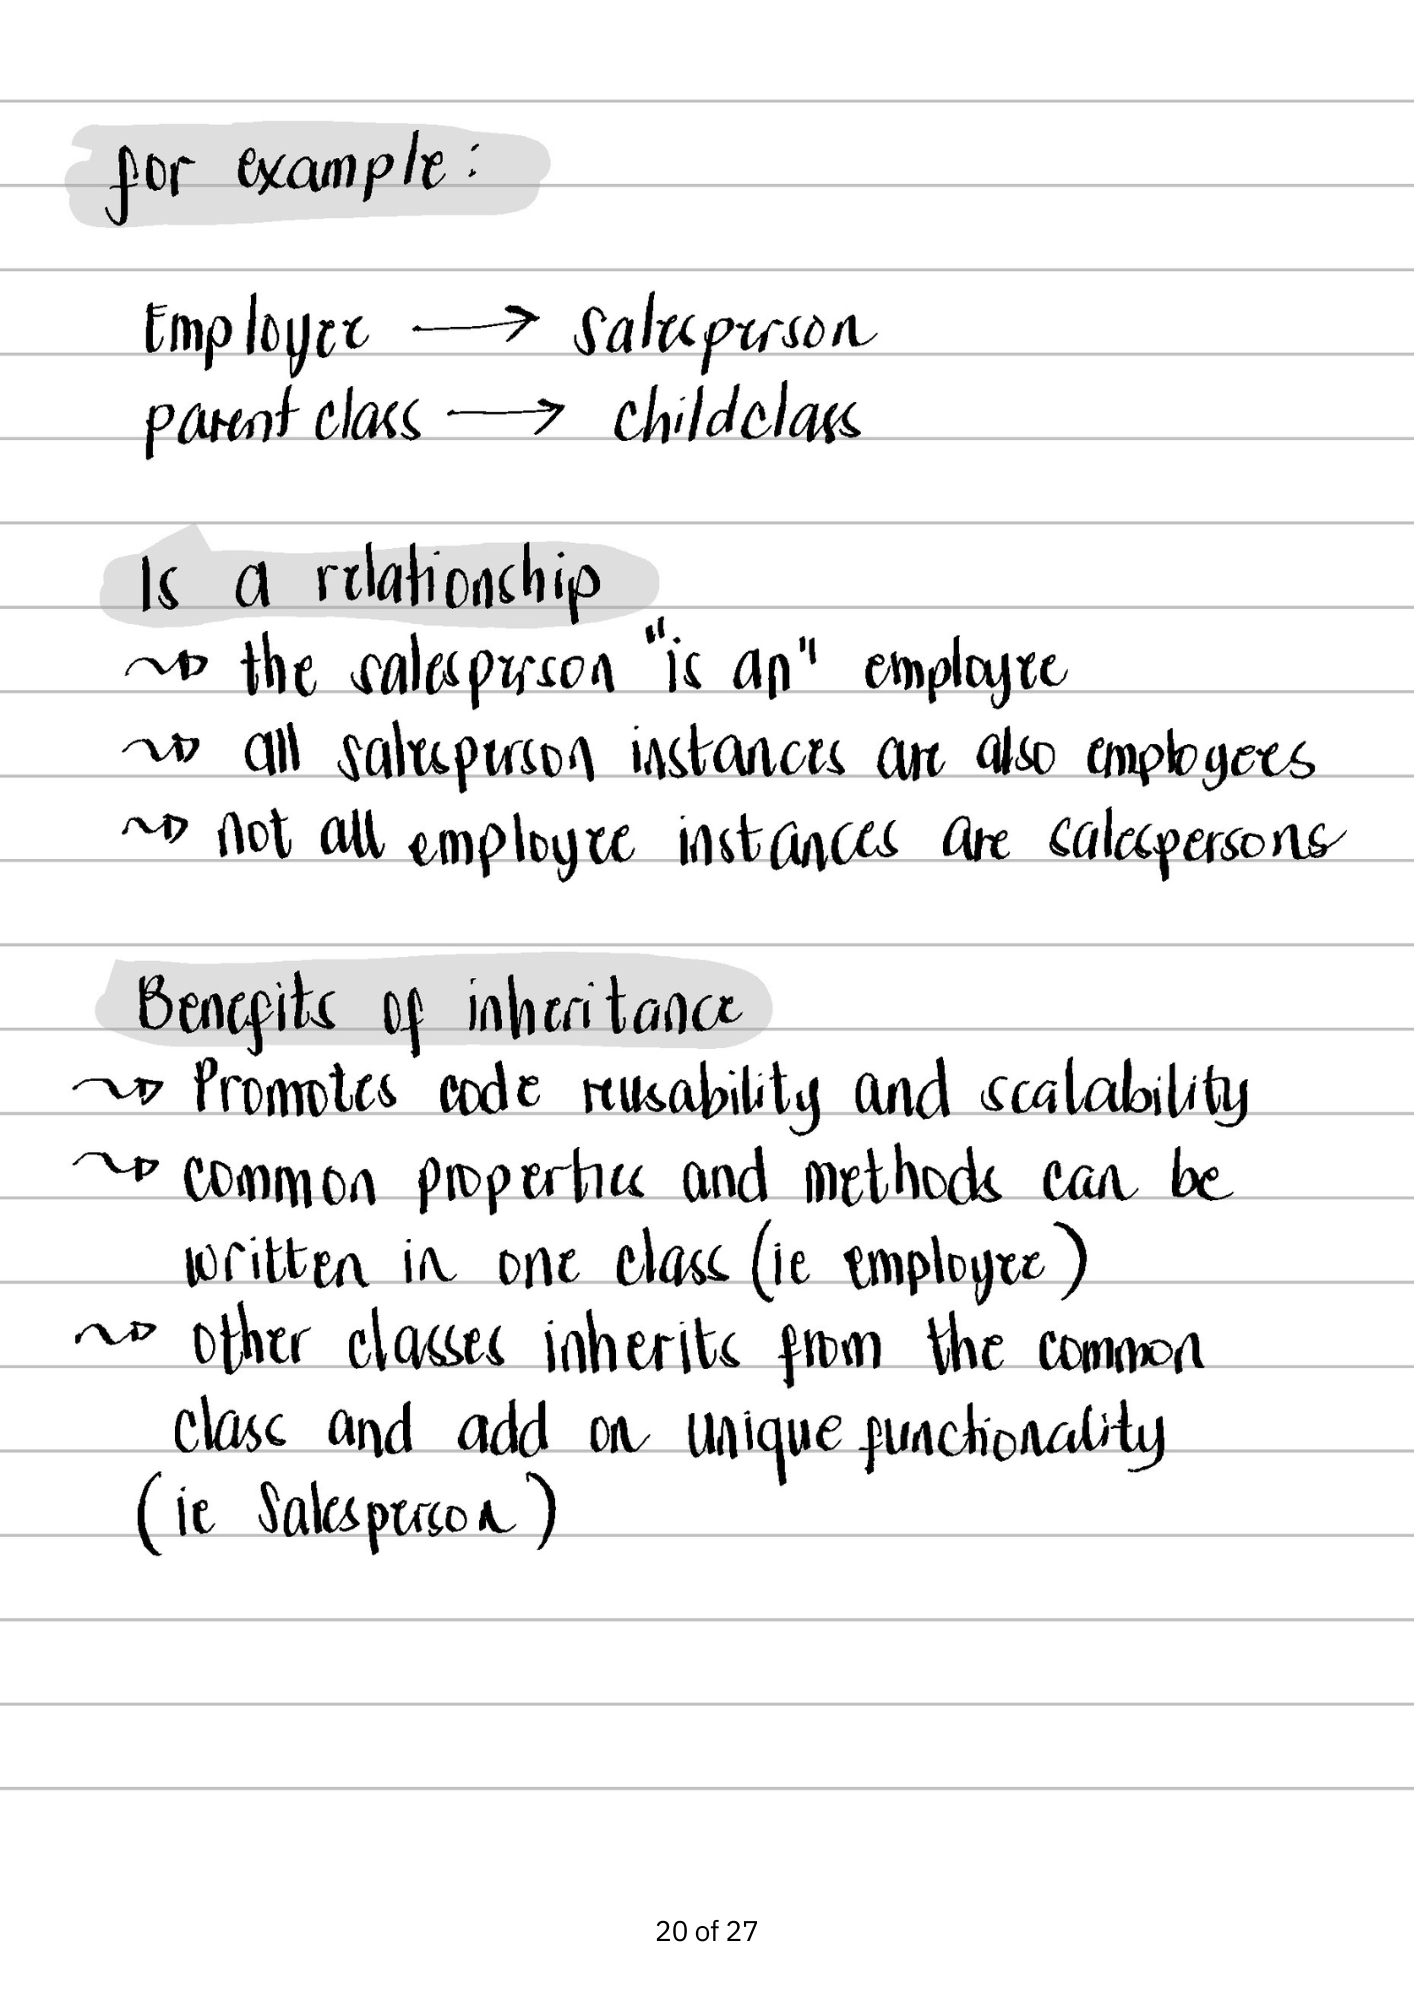 for example:
Employee → Salesperson
parent class → childclass
Is a relationship
the salesperson "is an" employee
all salesperson instances are also employees
not all employee instances are salespersons
Benefits of inheritance
Promotes code reusability and scalability
common properties and methods can be
written in one class (ie employee)
other classes inherits from the common
class and add on unique functionality
(ie Salesperson)
20 of 27